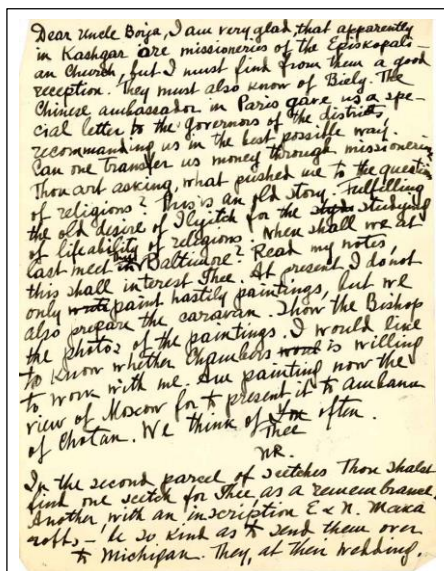 Dear Uncle Borja, I am very glad, that apparently
in Kashgar are missioneries of the Episkopali-
an Church, but I must find from them a good
reception. They must also know of Biely. The
Chinese ambassador in Paris gave us a spe-
cial letter to the governors of the district,
recommanding us in the best possible way.
Can one transfer us money through missioneries
Thou art asking, what pushed me to the question
of religions? This is an old story. Fulfilling
the old desire of Ilyitch for the studying
of lifeability of religions. When shall we at
last meet Baltimore? Read my notes,
this shall interest Thee. At present I do not
only paint hastily paintings, but we
also prepare the caravan. Show the Bishop
the photos of the paintings. I would like
to know whether Chambers is willing
to work with me. Am painting now the
view of Moscow for to present it to Ambann
of Chotan. We think of often.
Thee
NR.
In the second parcel of scetches Thou shalst
find one scetch for Thee as a remembrance.
Another with an inscription E & N. Maka
roff, – be so kind as to send them over
to Michigan. They, at their wedding